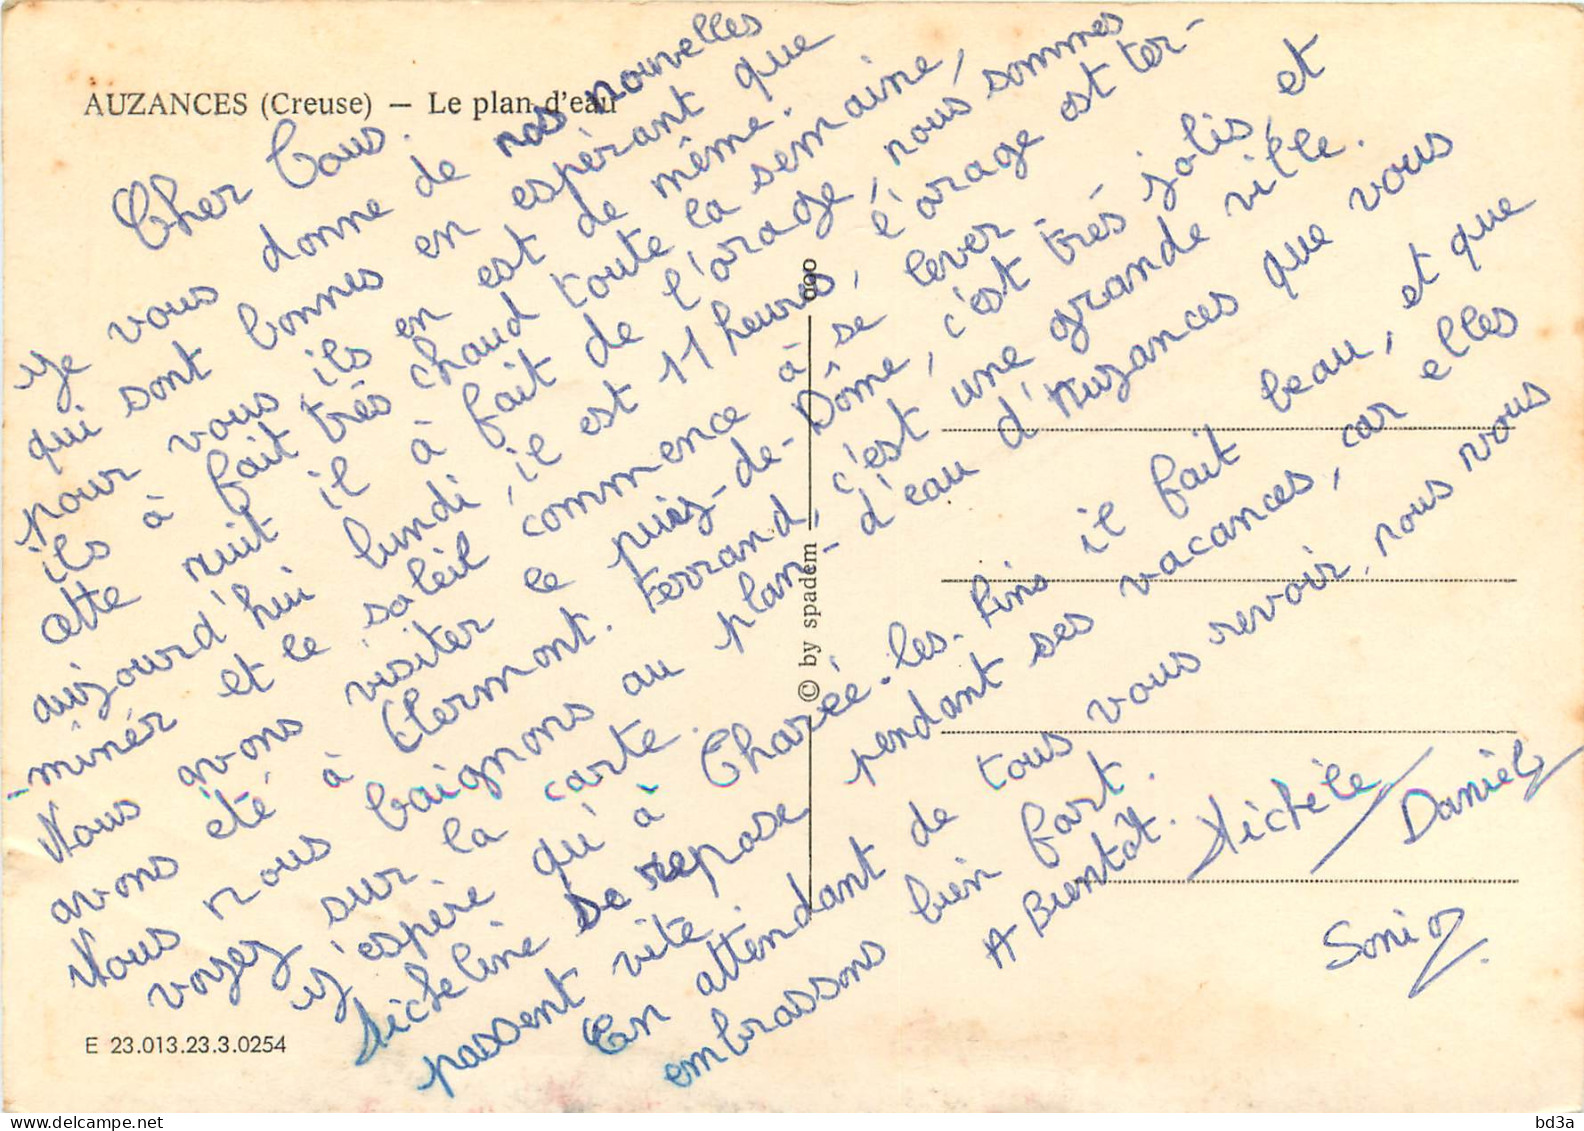 AUZANCES (Creuse) — Le plan d'eau
Cher Tous.
Je vous donne de nos nouvelles
qui sont bonnes en espérant que
pour vous, ils en est de même.
ils à fait très chaud toute la semaine,
cette nuit il à fait de l'orage, nous sommes
aujourd'hui lundi, il est 11 heures, l'orage est ter-
minér et le soleil commence à se lever.
Nous avons visiter le puis-de-Dôme, c'est très jolis, et
avons été à Clermont. Ferrand, c'est une grande ville.
Nous nous baignons au plan-d'eau d'Auzances que vous
voyez sur la carte.
J'espère qu'à Charée-les-Pins il fait beau, et que
Micheline se repose pendant ses vacances, car elles
passent vite.
En attendant de tous vous revoir, nous vous
embrassons bien fort.
A Bientôt. Michèle / Daniel
Sonia
© by spadem
E 23.013.23.3.0254
bd3a